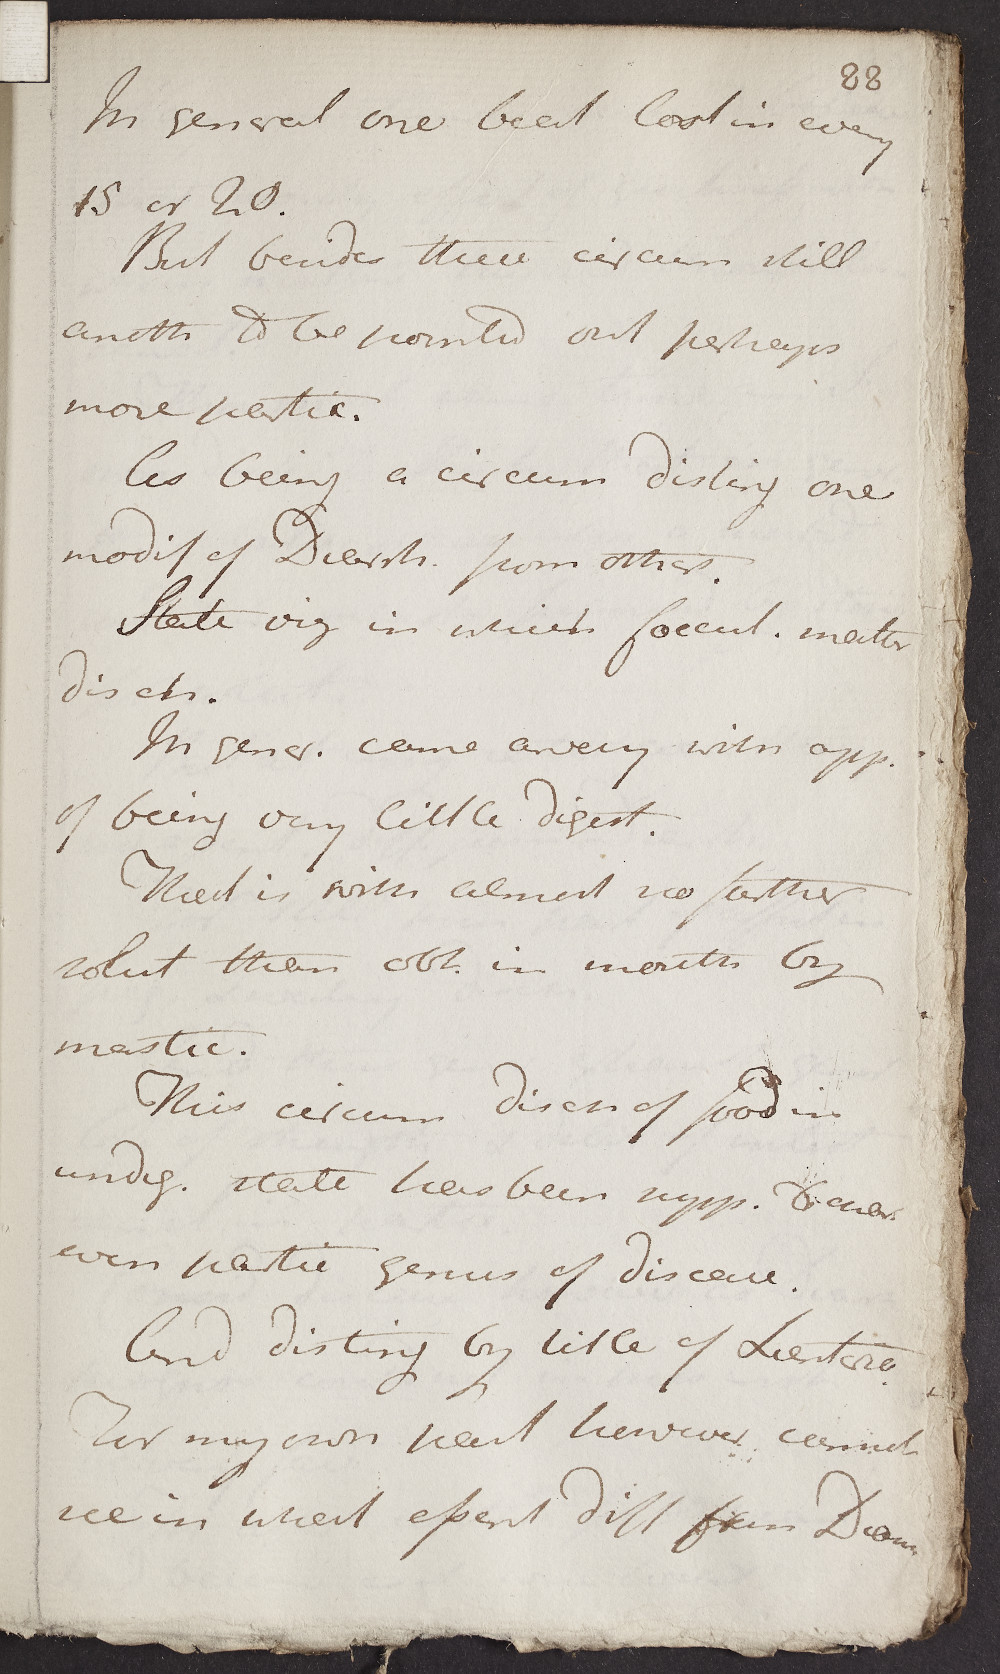 88
In general one beat lost in every
15 or 20.
But besides these circum still
anoth to be pointed out perhaps
more partic.
As being a circum disting one
modif of Diarrh. from other.
State viz in which foecul. matter
disch.
In gener. came away with app.
of being very little digest.
That is with almost no farther
solut than obt. in mouth by
mastic.
This circum disch of food in
undig. state has been supp. to
even partic genus of disease.
And disting by title of Lienteria.
For my own part however cannot
see in what essent diff from Diarr